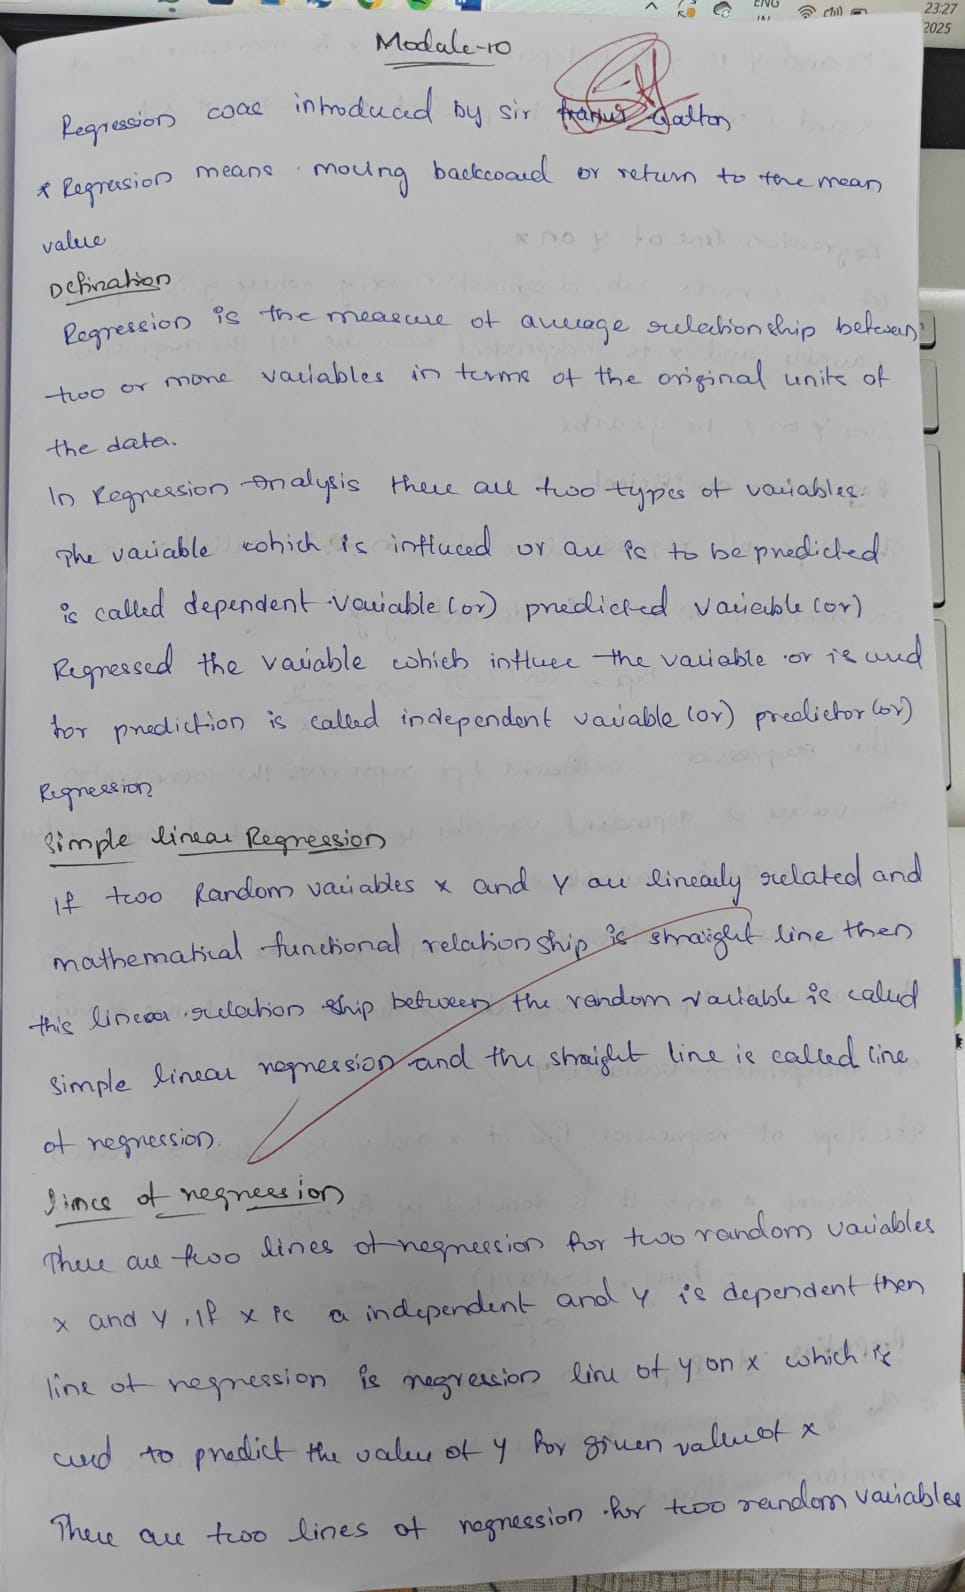 23:27
ENG
IN
2025
Module-10
Regression was introduced by sir Galton
* Regression means moving backward or return to the mean
value
Defination
Regression is the measure of average relationship between
two or more variables in terms of the original units of
the data.
In Regression Analysis there are two types of variables.
The variable which is influced or are is to be predicted
is called dependent variable (or) predicted variable (or)
Regressed the variable which influee the variable or is used
for prediction is called independent variable (or) predictor (or)
Regression
Simple linear Regression
If two Random variables x and y are linearly related and
mathematical functional relation ship is straight line then
this linear relation ship between the random variable is called
simple linear regression and the straight line is called line
of regression.
lines of regression
There are two lines of regression for two random variables
x and y, if x is a independent and y is dependent then
line of regression is regression line of y on x which is
used to predict the value of y for given value of x
There are two lines of regression for two random variables